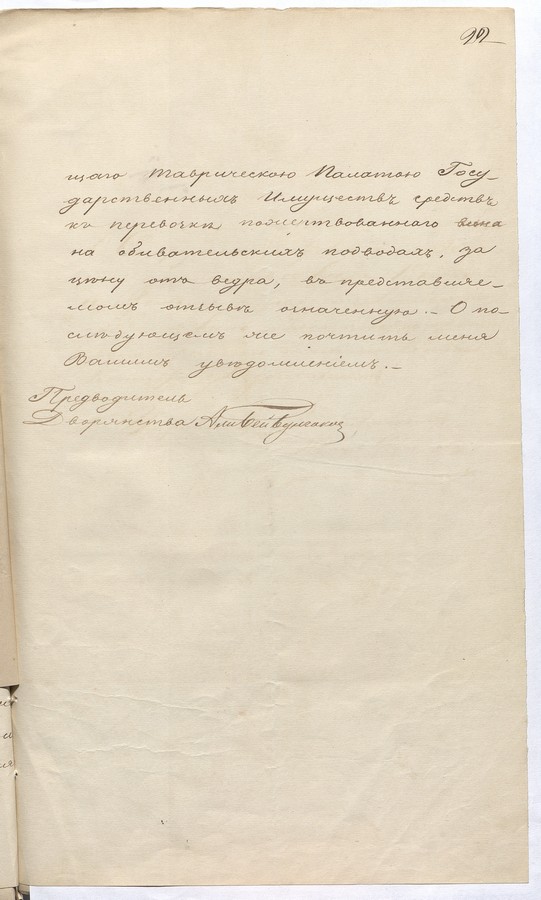 щаго Таврическою Палатою Госу-
дарственныхъ Имуществъ средствъ
къ перевозки пожертвованнаго вина
на обывательскихъ подводахъ, за
цѣну отъ ведра, въ представляе-
момъ отзывѣ означенную. – О по-
слѣдующемъ же почтить меня
Вашимъ увѣдомленіемъ. –
Предводитель
Дворянства Али Бей